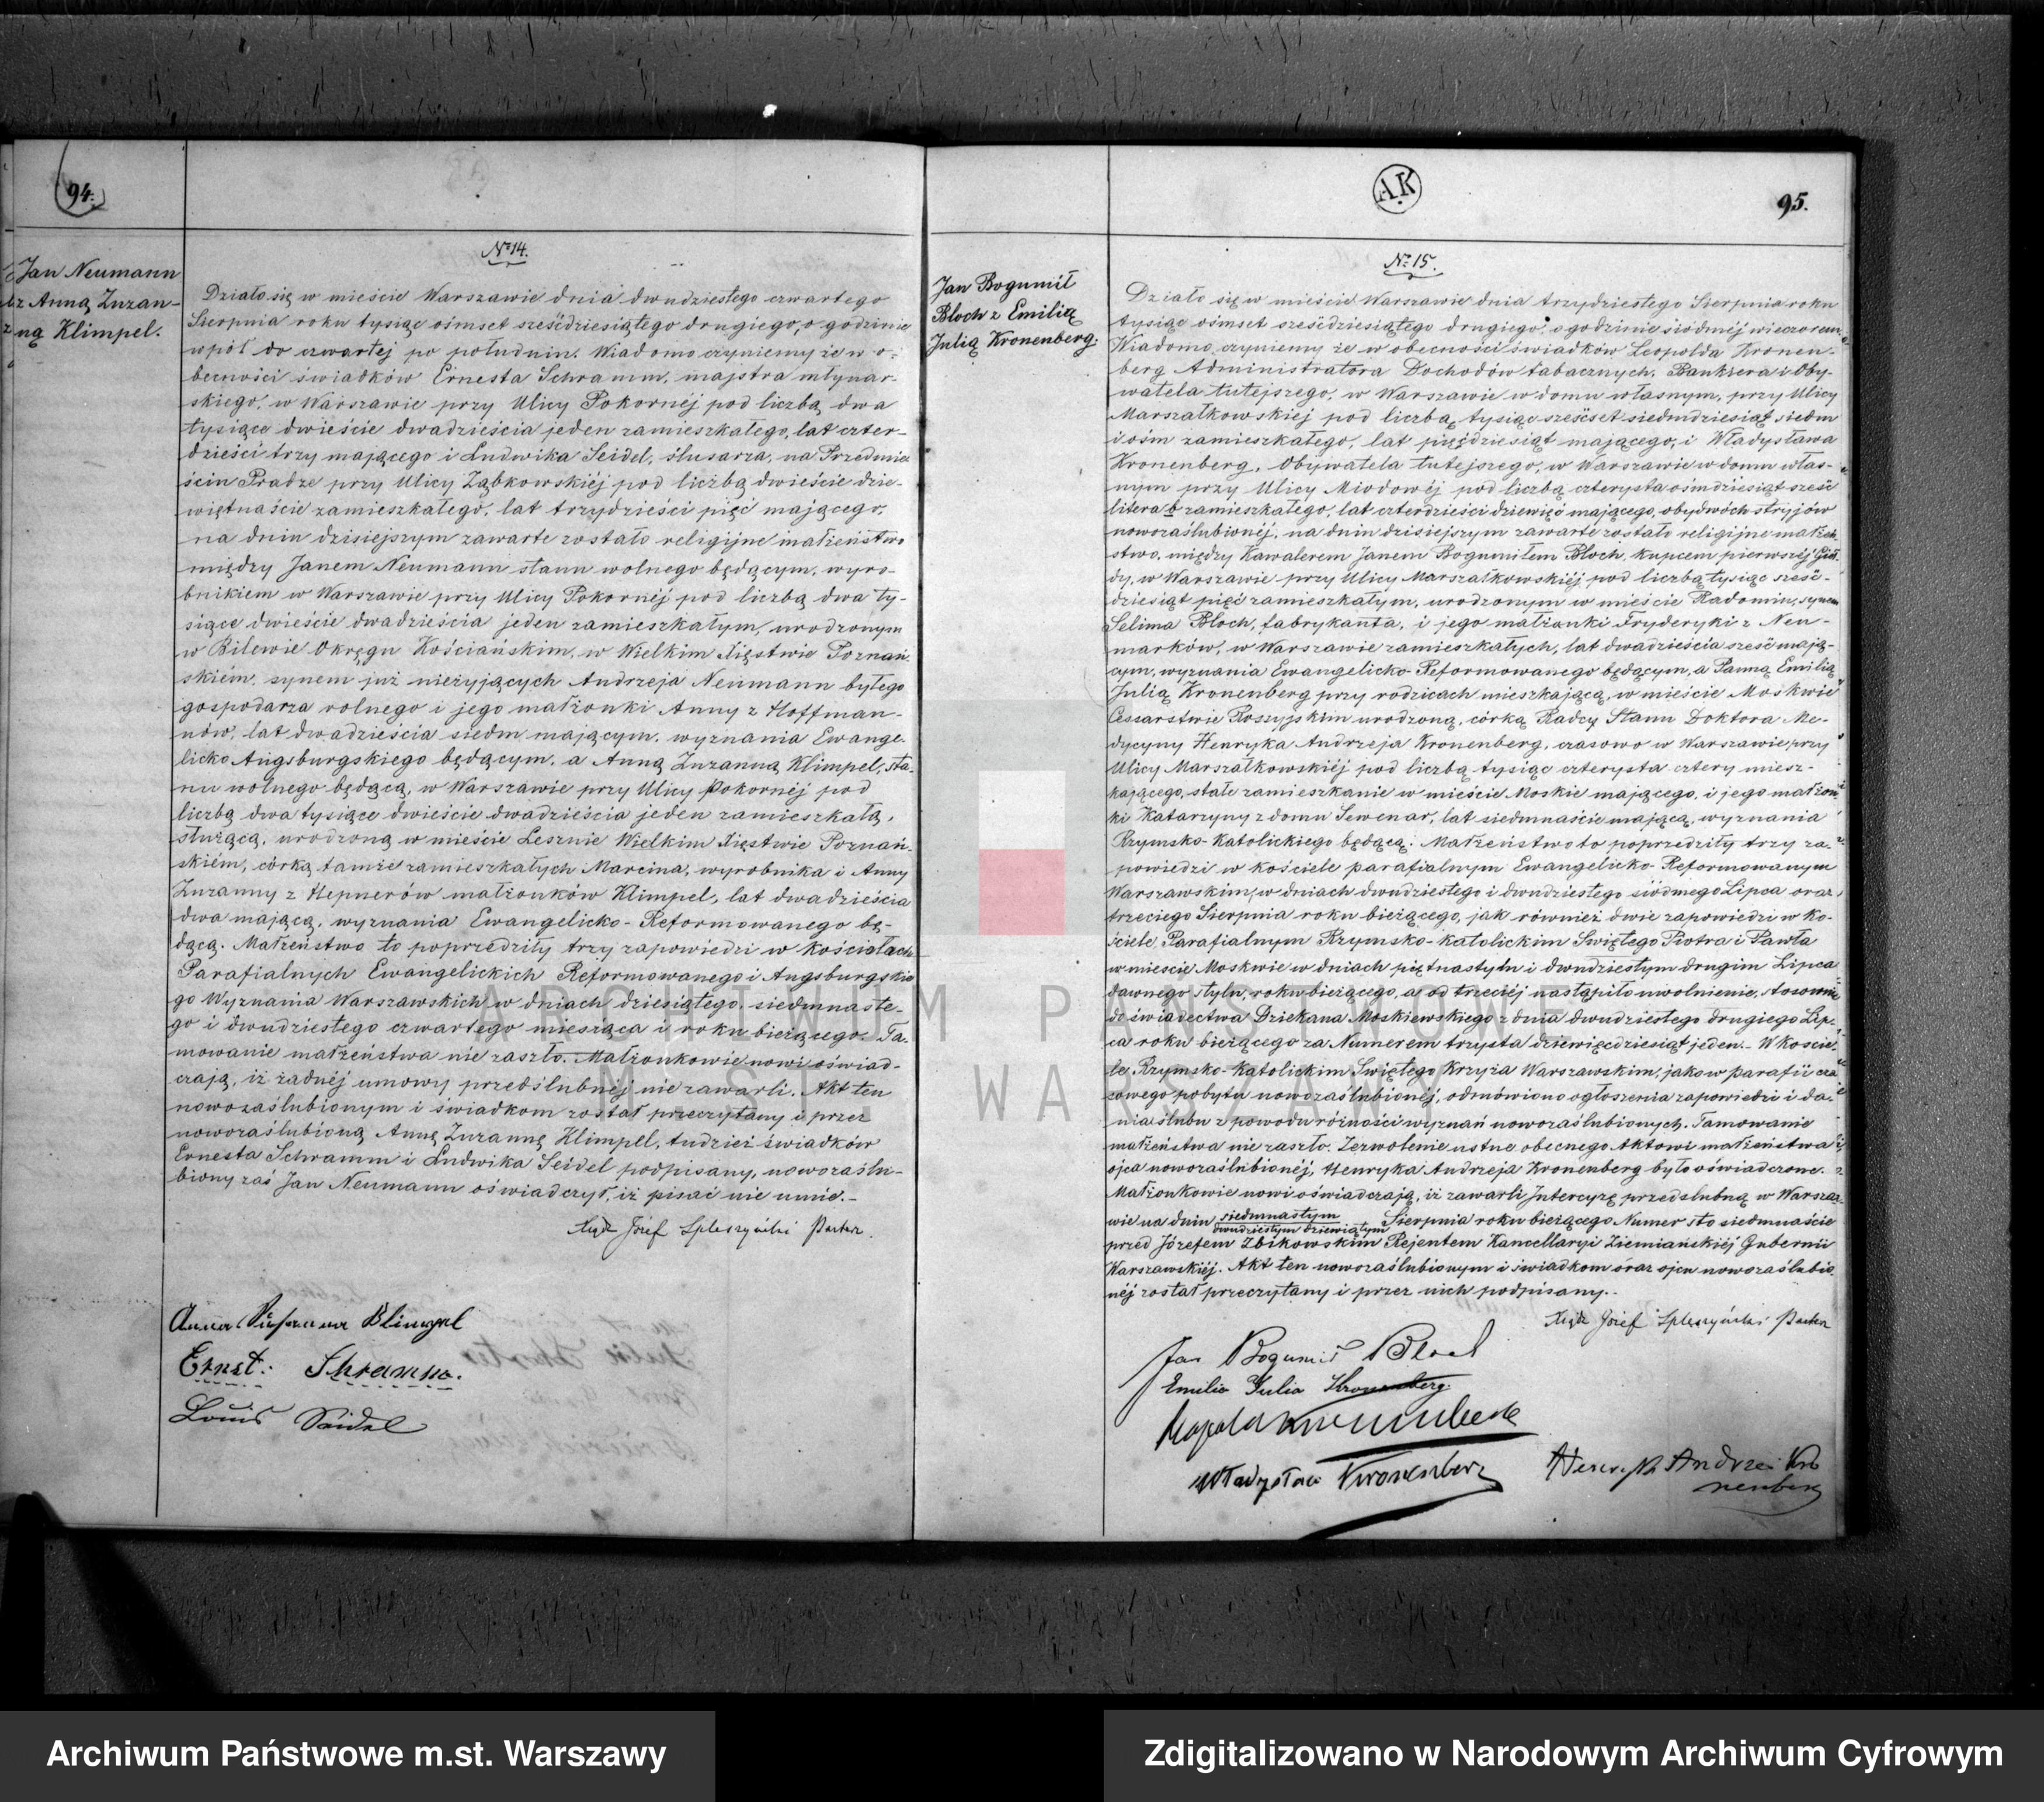 94.
Jan Neumann
z Anną Zuzan-
ną Klimpel.
№ 14.
Działo się w mieście Warszawie dnia dwudziestego czwartego
Sierpnia roku tysiąc ośmset sześćdziesiątego drugiego, o godzinie
wpół do czwartej po południu. Wiadomo czyniemy że w o-
becności świadków Ernesta Schramm, majstra młynar-
skiego, w Warszawie przy Ulicy Pokornéj pod liczbą dwa
tysiące dwieście dwadzieścia jeden zamieszkałego, lat czter-
dzieści trzy mającego i Ludwika Seidel, ślusarza, na Przedmie
ściu Pradze przy Ulicy Ząbkowskiéj pod liczbą dwieście dzie-
więtnaście zamieszkałego, lat trzydzieści pięć mającego,
na dniu dzisiejszym zawarte zostało religijne małżeństwo
między Janem Neumann stanu wolnego będącym, wyro-
bnikiem w Warszawie przy Ulicy Pokornéj pod liczbą dwa ty-
siące dwieście dwadzieścia jeden zamieszkałym, urodzonym
w Bilewie Okręgu Kościańskim, w Wielkim Xięstwie Poznań-
skiém, synem już nieżyjących Andrzeja Neumann byłego
gospodarza rolnego i jego małżonki Anny z Hoffman-
nów, lat dwadzieścia siedm mającym, wyznania Ewange-
licko Augsburgskiego będącym, a Anną Zuzanną Klimpel, sta-
nu wolnego będącą, w Warszawie przy Ulicy Pokornéj pod
liczbą dwa tysiące dwieście dwadzieścia jeden zamieszkałą,
służącą, urodzoną w mieście Lesznie Wielkim Xięstwie Poznań-
skiém, córką tamże zamieszkałych Marcina, wyrobnika i Anny
Zuzanny z Hepnerów małżonków Klimpel, lat dwadzieścia
dwa mającą, wyznania Ewangelicko-Reformowanego bę-
dącą. Małżeństwo to poprzedziły trzy zapowiedzi w kościołach
Parafialnych Ewangelickich Reformowanego i Augsburgskie
go Wyznania Warszawskich w dniach dziesiątego, siedmnaste-
go i dwudziestego czwartego miesiąca i roku bieżącego. Ta-
mowanie małżeństwa nie zaszło. Małżonkowie nowi oświad-
czają, iż żadnéj umowy przedślubnéj nie zawarli. Akt ten
nowozaślubionym i świadkom został przeczytany i przez
nowozaślubioną Annę Zuzannę Klimpel, tudzież świadków
Ernesta Schramm i Ludwika Seidel podpisany, nowozaślu-
biony zaś Jan Neumann oświadczył, iż pisać nie umie.-
Xiądz Józef Spleszyński Pastor.
Ernst: Shramm.
Louis Seidel
AK
95.
Jan Bogumił
Bloch z Emilią
Julią Kronenberg.
№ 15.
Działo się w mieście Warszawie dnia trzydziestego Sierpnia roku
tysiąc ośmset sześćdziesiątego drugiego, o godzinie siódméj wieczorem
Wiadomo czyniemy że w obecności świadków Leopolda Kronen-
berg Administratora Dochodów tabacznych, Bankiera i Oby-
watela tutejszego, w Warszawie w domu własnym, przy Ulicy
Marszałkowskiej pod liczbą tysiąc sześćset siedmdziesiąt siedm
i ośm zamieszkałego, lat pięćdziesiąt mającego, i Władysława
Kronenberg, Obywatela tutejszego, w Warszawie w domu włas-
nym przy Ulicy Miodowéj pod liczbą czterysta ośmdziesiąt sześć
litera b zamieszkałego, lat czterdzieści dziewięć mającego, obydwóch stryjów
nowozaślubionéj, na dniu dzisiejszym zawarte zostało religijne małżeń
stwo, między Kawalerem Janem Bogumiłem Bloch, kupcem pierwszéj Gil-
dy, w Warszawie przy Ulicy Marszałkowskiéj pod liczbą tysiąc sześć-
dziesiąt pięć zamieszkałym, urodzonym w mieście Radomiu, synem
Selima Bloch, fabrykanta, i jego małżonki Fryderyki z Neu-
marków, w Warszawie zamieszkałych, lat dwadzieścia sześć mają-
cym, wyznania Ewangelicko-Reformowanego będącym, a Panną Emilią
Julią Kronenberg przy rodzicach mieszkającą, w mieście Moskwie
Cesarstwie Rossyjskim urodzoną, córką Radcy Stanu Doktora Me-
dycyny Henryka Andrzeja Kronenberg, czasowo w Warszawie, przy
Ulicy Marszałkowskiéj pod liczbą tysiąc czterysta cztery miesz-
kającego, stałe zamieszkanie w mieście Moskie mającego, i jego małżon
ki Katarzyny z domu Sewenar, lat siedmnaście mającą, wyznania
Rzymsko-Katolickiego będącą. Małżeństwo to poprzedziły trzy za-
powiedzi w kościele parafialnym Ewangelicko-Reformowanym
Warszawskim, w dniach dwudziestego i dwudziestego siódmego Lipca oraz
trzeciego Sierpnia roku bieżącego, jak również dwie zapowiedzi w Ko-
ściele Parafialnym Rzymsko-Katolickim Świętego Piotra i Pawła
w mieście Moskwie w dniach piętnastym i dwudziestym drugim Lipca
dawnego stylu, roku bieżącego, a od trzeciéj nastąpiło uwolnienie, stosownie
do świadectwa Dziekana Moskiewskiego z dnia dwudziestego drugiego Lip-
ca roku bieżącego za Numerem trzysta dziewięćdziesiąt jeden.- W Koście-
le Rzymsko-Katolickim Świętego Krzyża Warszawskim, jako w parafii cza
sowego pobytu nowozaślubionéj, odmówiono ogłoszenia zapowiedzi i da-
nia ślubu z powodu różności wyznań nowozaślubionych. Tamowanie
małżeństwa nie zaszło. Zezwolenie ustne obecnego Aktowi małżeństwa
ojca nowozaślubionéj, Henryka Andrzeja Kronenberg było oświadczone.
Małżonkowie nowi oświadczają, iż zawarli Intercyzę przedślubną w Warsza-
wie na dniu siedmnastym dwudziestym dziewiątym Sierpnia roku bieżącego Numer sto siedmnaście
przed Józefem Zbikowskim Rejentem Kancellaryi Ziemiańskiéj Gubernii
Warszawskiéj. Akt ten nowozaślubionym i świadkom oraz ojcu nowozaślubio
néj został przeczytany i przez nich podpisany.-
Xiądz Józef Spleszyński Pastor
Jan Bogumił Bloch
Emilia Julia Kronenberg
Leopold Kronenberg
Władysław Kronenberg
Henryk Andrzej Kro
nenberg
ARCHIWUM PAŃSTWOWE
M. ST. WARSZAWY
Archiwum Państwowe m.st. Warszawy
Zdigitalizowano w Narodowym Archiwum Cyfrowym